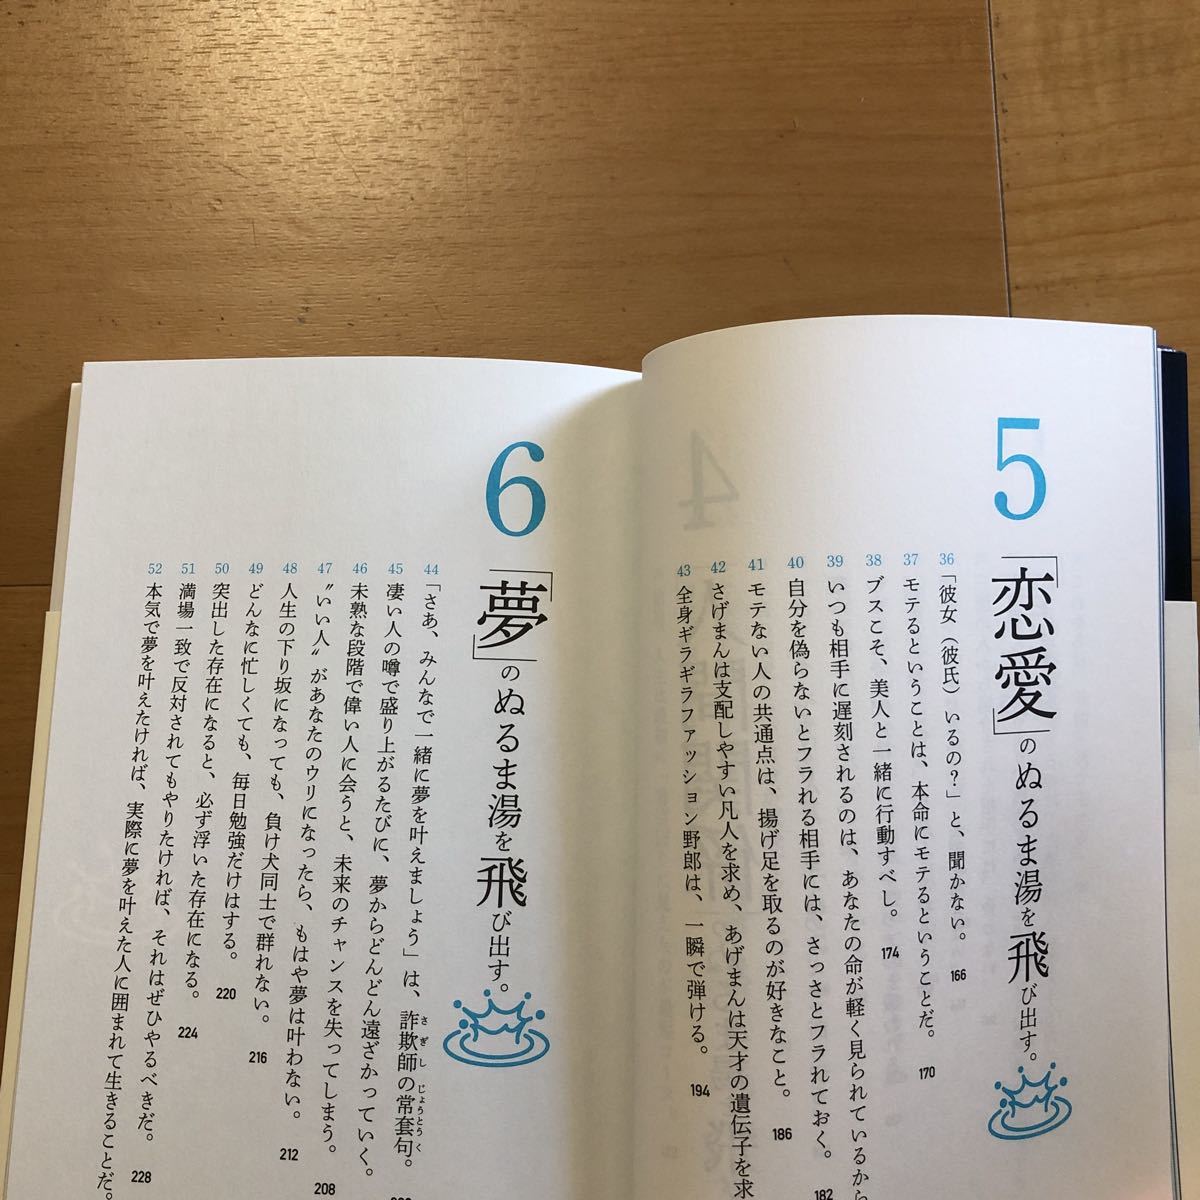 5
「恋愛」のぬるま湯を飛び出す。
36 「彼女（彼氏）いるの？」と、聞かない。 166
37 モテるということは、本命にモテるということだ。 170
38 ブスこそ、美人と一緒に行動すべし。 174
39 いつも相手に遅刻されるのは、あなたの命が軽く見られているから
40 自分を偽らないとフラれる相手には、さっさとフラれておく。 182
41 モテない人の共通点は、揚げ足を取るのが好きなこと。 186
42 さげまんは支配しやすい凡人を求め、あげまんは天才の遺伝子を求
43 全身ギラギラファッション野郎は、一瞬で弾ける。 194
6
「夢」のぬるま湯を飛び出す。
44 「さあ、みんなで一緒に夢を叶えましょう」は、詐欺師の常套句。
さぎし じょうとうく
45 凄い人の噂で盛り上がるたびに、夢からどんどん遠ざかっていく。
46 未熟な段階で偉い人に会うと、未来のチャンスを失ってしまう。 208
47 〝いい人〟があなたのウリになったら、もはや夢は叶わない。 212
48 人生の下り坂になっても、負け犬同士で群れない。 216
49 どんなに忙しくても、毎日勉強だけはする。 220
50 突出した存在になると、必ず浮いた存在になる。 224
51 満場一致で反対されてもやりたければ、それはぜひやるべきだ。 228
52 本気で夢を叶えたければ、実際に夢を叶えた人に囲まれて生きることだ。